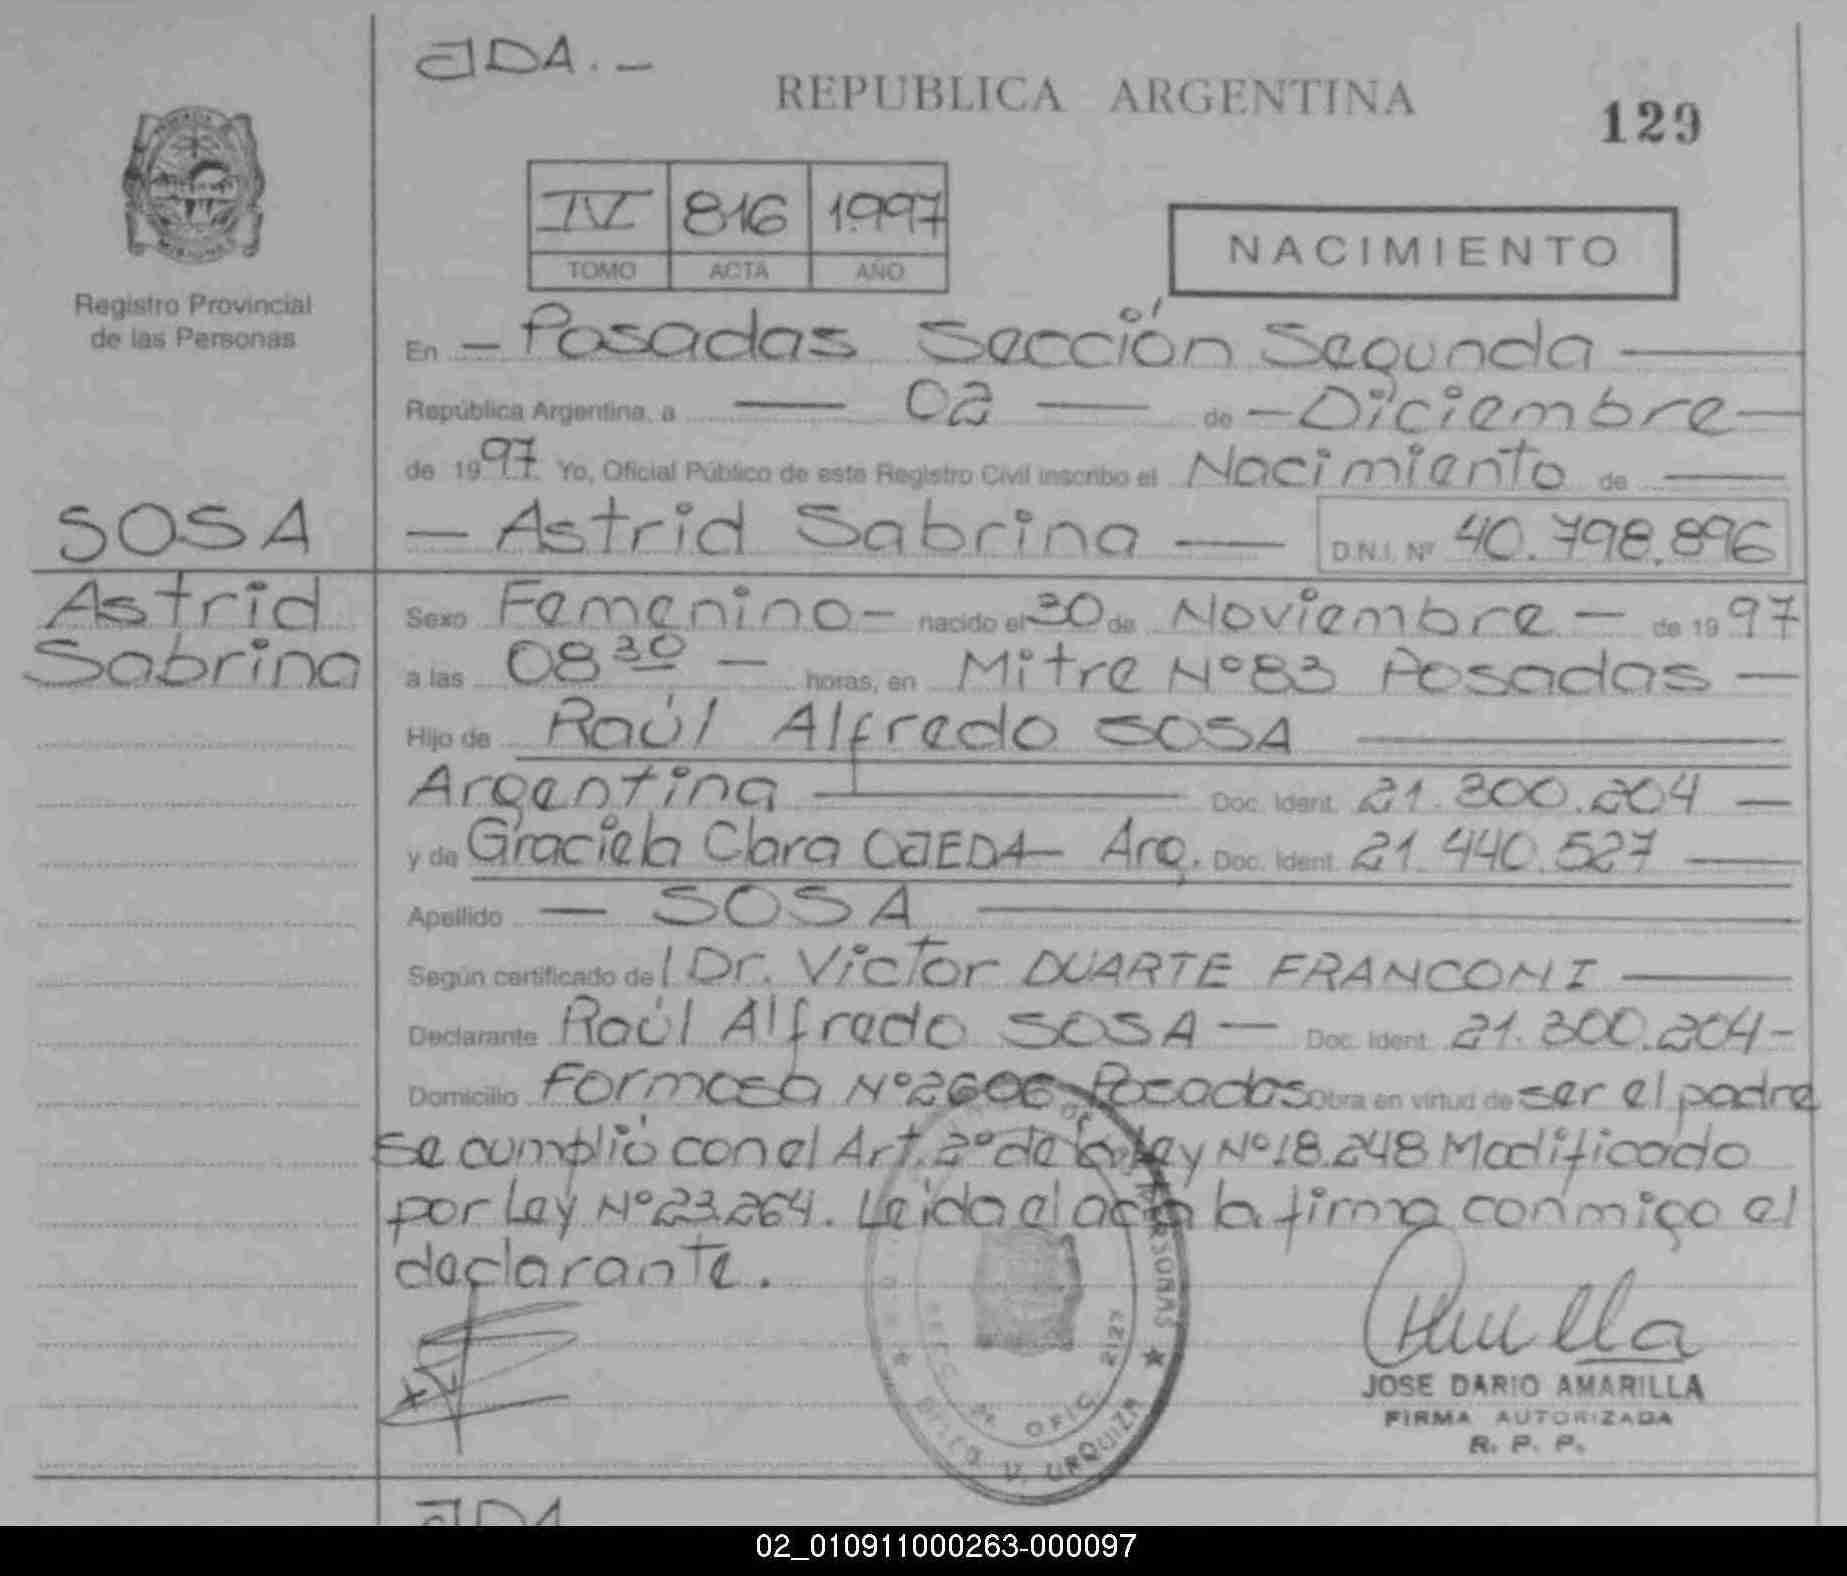 JDA.-
REPUBLICA ARGENTINA
129
IV 816 1997
TOMO ACTA AÑO
NACIMIENTO
Registro Provincial
de las Personas
En - Posadas Sección Segunda
República Argentina, a 02 de - Diciembre
de 1997 Yo, Oficial Público de este Registro Civil inscribo el Nacimiento de
SOSA
- Astrid Sabrina - D.N.I. Nº 40.798.896
Astrid
Sabrina
Sexo Femenino - nacido el 30 de Noviembre - de 1997
a las 08 30 - horas, en Mitre Nº 83 Posadas -
Hijo de Raúl Alfredo SOSA
Argentina Doc. Ident. 21.300.204 -
y de Graciela Clara OJEDA - Arg. Doc. Ident. 21.440.527
Apellido - SOSA
Según certificado del Dr. Victor DUARTE FRANCONI
Declarante Raúl Alfredo SOSA - Doc. Ident. 21.300.204-
Domicilio Formosa Nº 2606 Posadas Obra en virtud de ser el padre
se cumplió con el Art. 2º de la Ley Nº 18.248 Modificado
por Ley Nº 23.264. Leida el acta la firma conmigo el
declarante.
JOSE DARIO AMARILLA
FIRMA AUTORIZADA
R. P. P.
PERSONAS
OFIC. 2127
V. URQUIZA
JDA
02_010911000263-000097